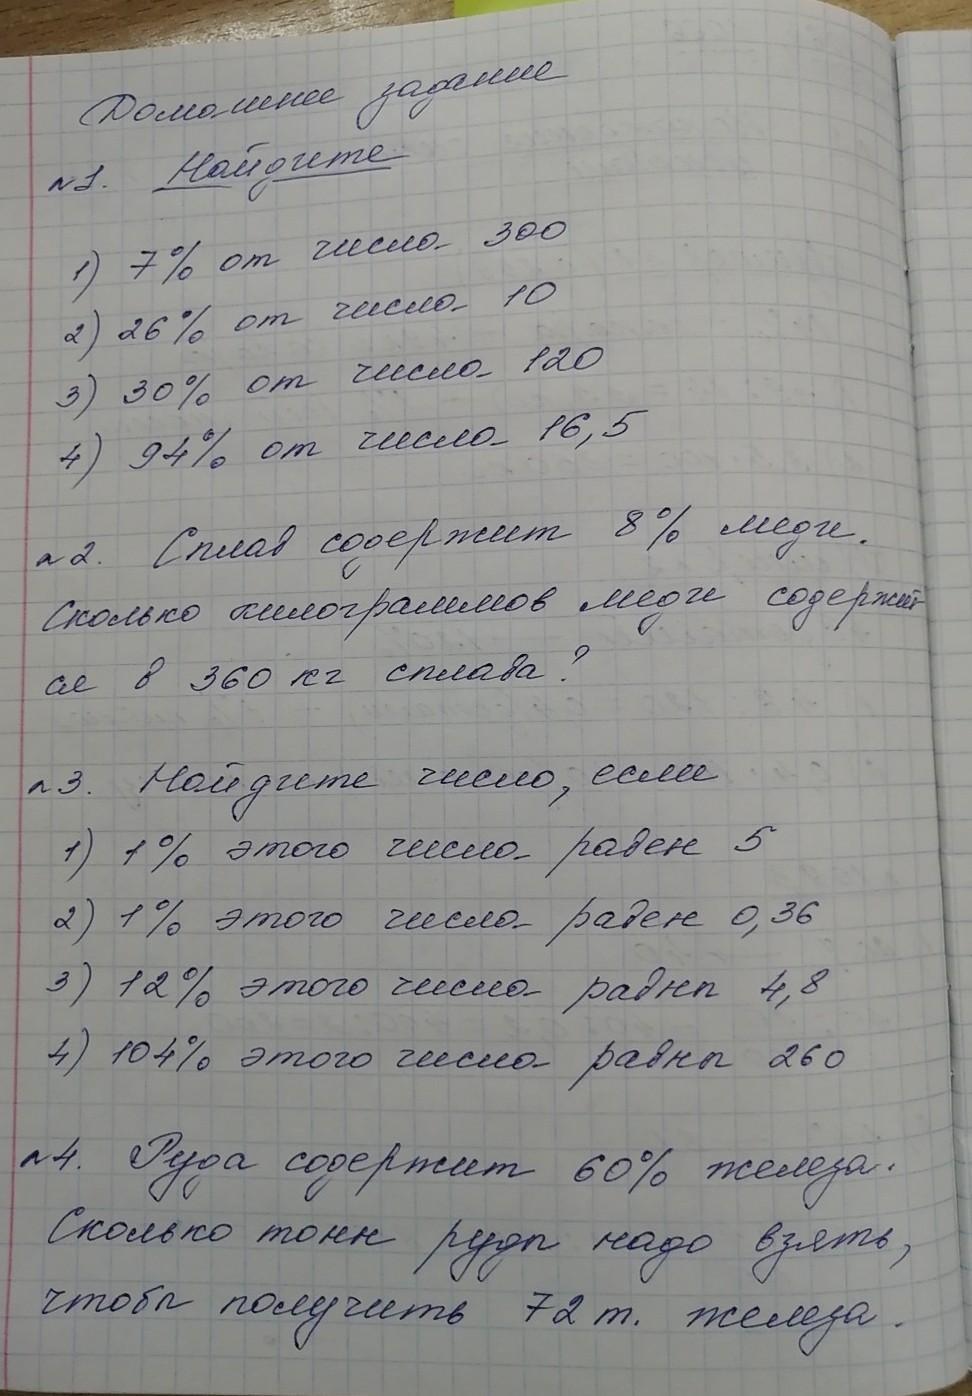 Домашнее задание
№1. Найдите
1) 7% от числа 300
2) 26% от числа 10
3) 30% от числа 120
4) 94% от числа 16,5
№2. Сплав содержит 8% меди.
Сколько килограммов меди содержит
ся в 360 кг сплава?
№3. Найдите число, если
1) 1% этого числа равен 5
2) 1% этого числа равен 0,36
3) 12% этого числа равны 4,8
4) 104% этого числа равны 260
№4. Руда содержит 60% железа.
Сколько тонн руды надо взять,
чтобы получить 72 т. железа.